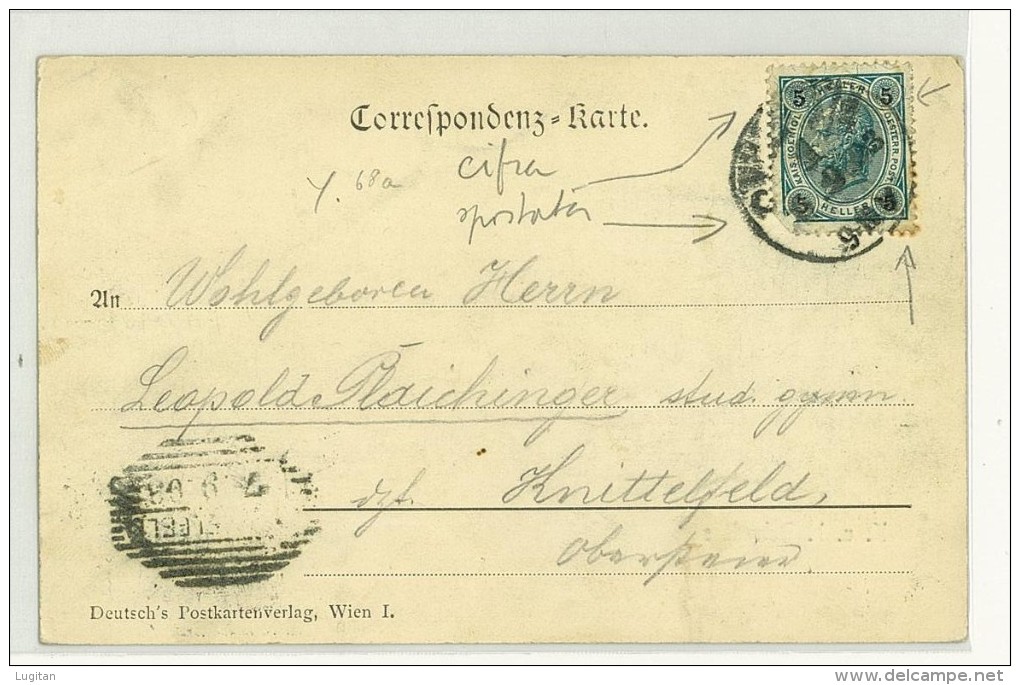 Correspondenz-Karte.
5 HELLER 5
KAIS. KOENIGL. OESTERR. POST
5 HELLER 5
Y. 68a
cifra
spostata
9
An Wohlgeboren Herrn
Leopold Plaichinger stud. gymn
dzt. Knittelfeld,
Obersteier
7 9 04
ELFELD
Deutsch's Postkartenverlag, Wien I.
Lugitan
delcampe.net